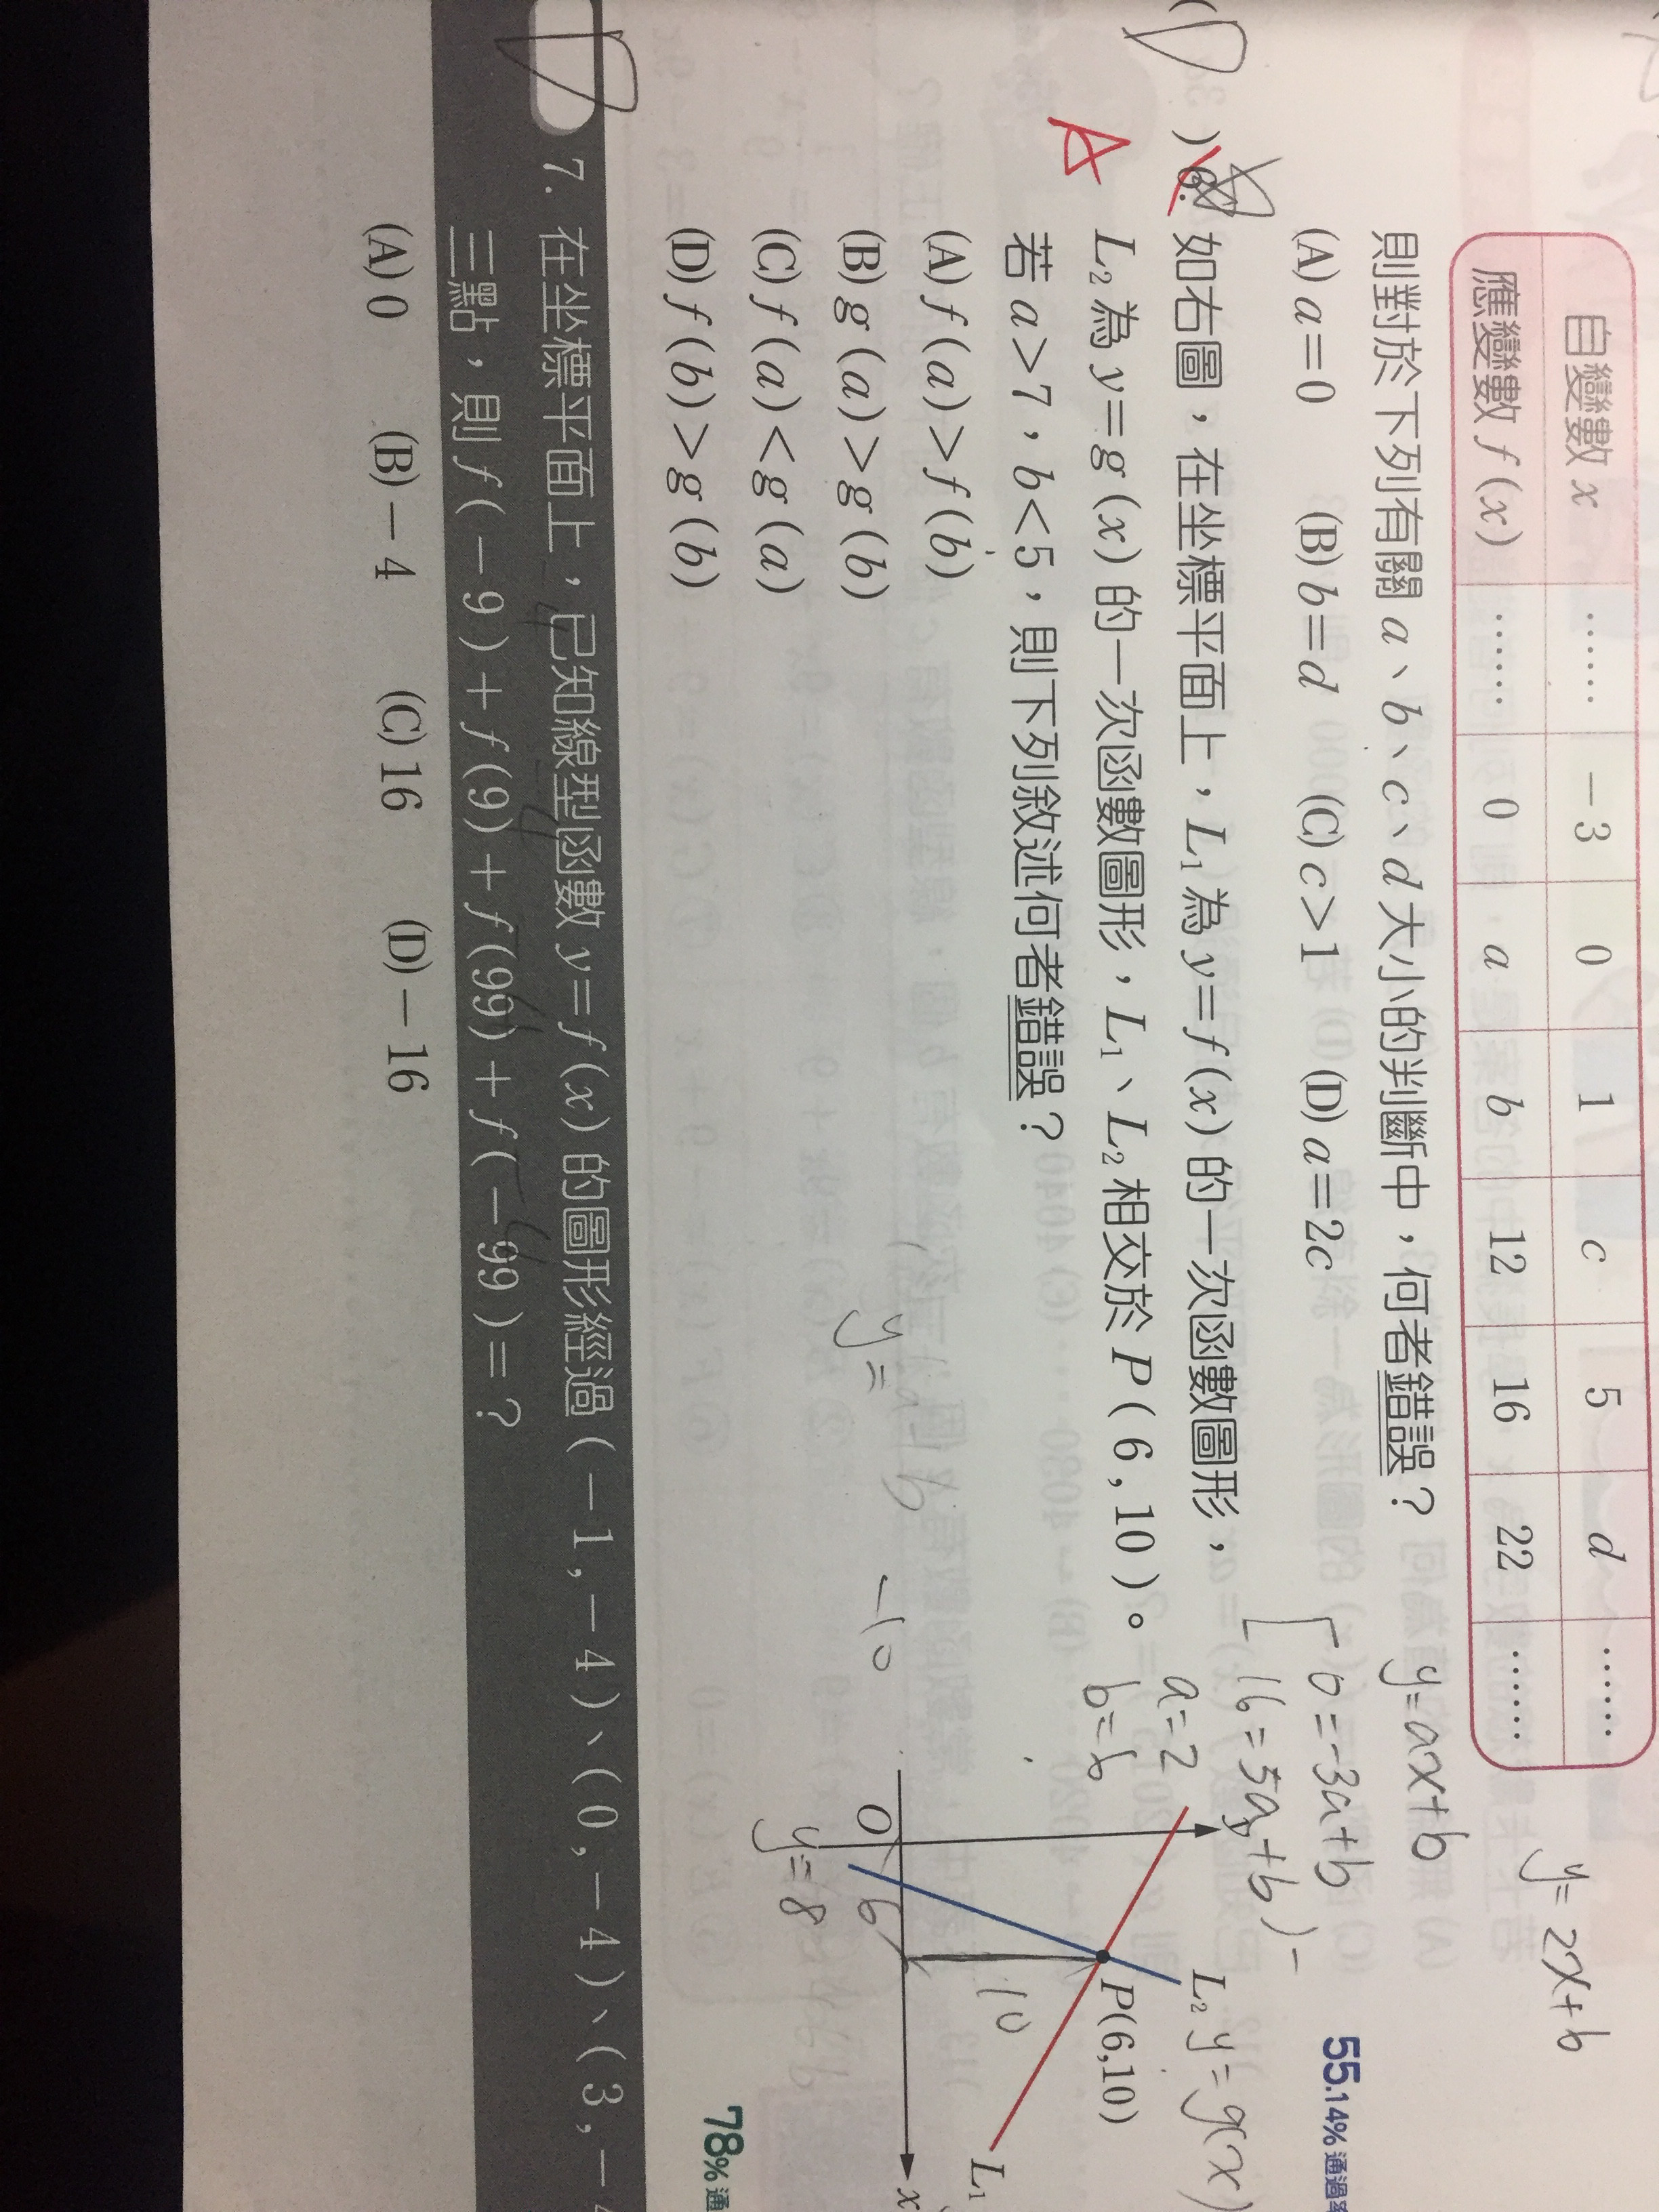 自變數 x …… -3 0 1 c 5 d ……
應變數 f(x) …… 0 a b 12 16 22 ……
y=2x+b
則對於下列有關 a、b、c、d 大小的判斷中，何者錯誤？
y=ax+b
(A) a=0 (B) b=d (C) c>1 (D) a=2c
0=-3a+b
16=5a+b)-
a=2
b=6
55.14% 通過率
) 6. 如右圖，在坐標平面上，L₁ 為 y=f(x) 的一次函數圖形，
L₂ 為 y=g(x) 的一次函數圖形，L₁、L₂ 相交於 P(6,10)。
若 a>7，b<5，則下列敘述何者錯誤？
A
(A) f(a)>f(b)
(B) g(a)>g(b)
(C) f(a)<g(a)
(D) f(b)>g(b)
L₂ y=g(x)
P(6,10)
10
L₁
O
6
x
y=8
y=
-10
78% 通
7. 在坐標平面上，已知線型函數 y=f(x) 的圖形經過 (-1,-4)、(0,-4)、(3,-4
三點，則 f(-9)+f(9)+f(99)+f(-99)=？
(A) 0 (B) -4 (C) 16 (D) -16